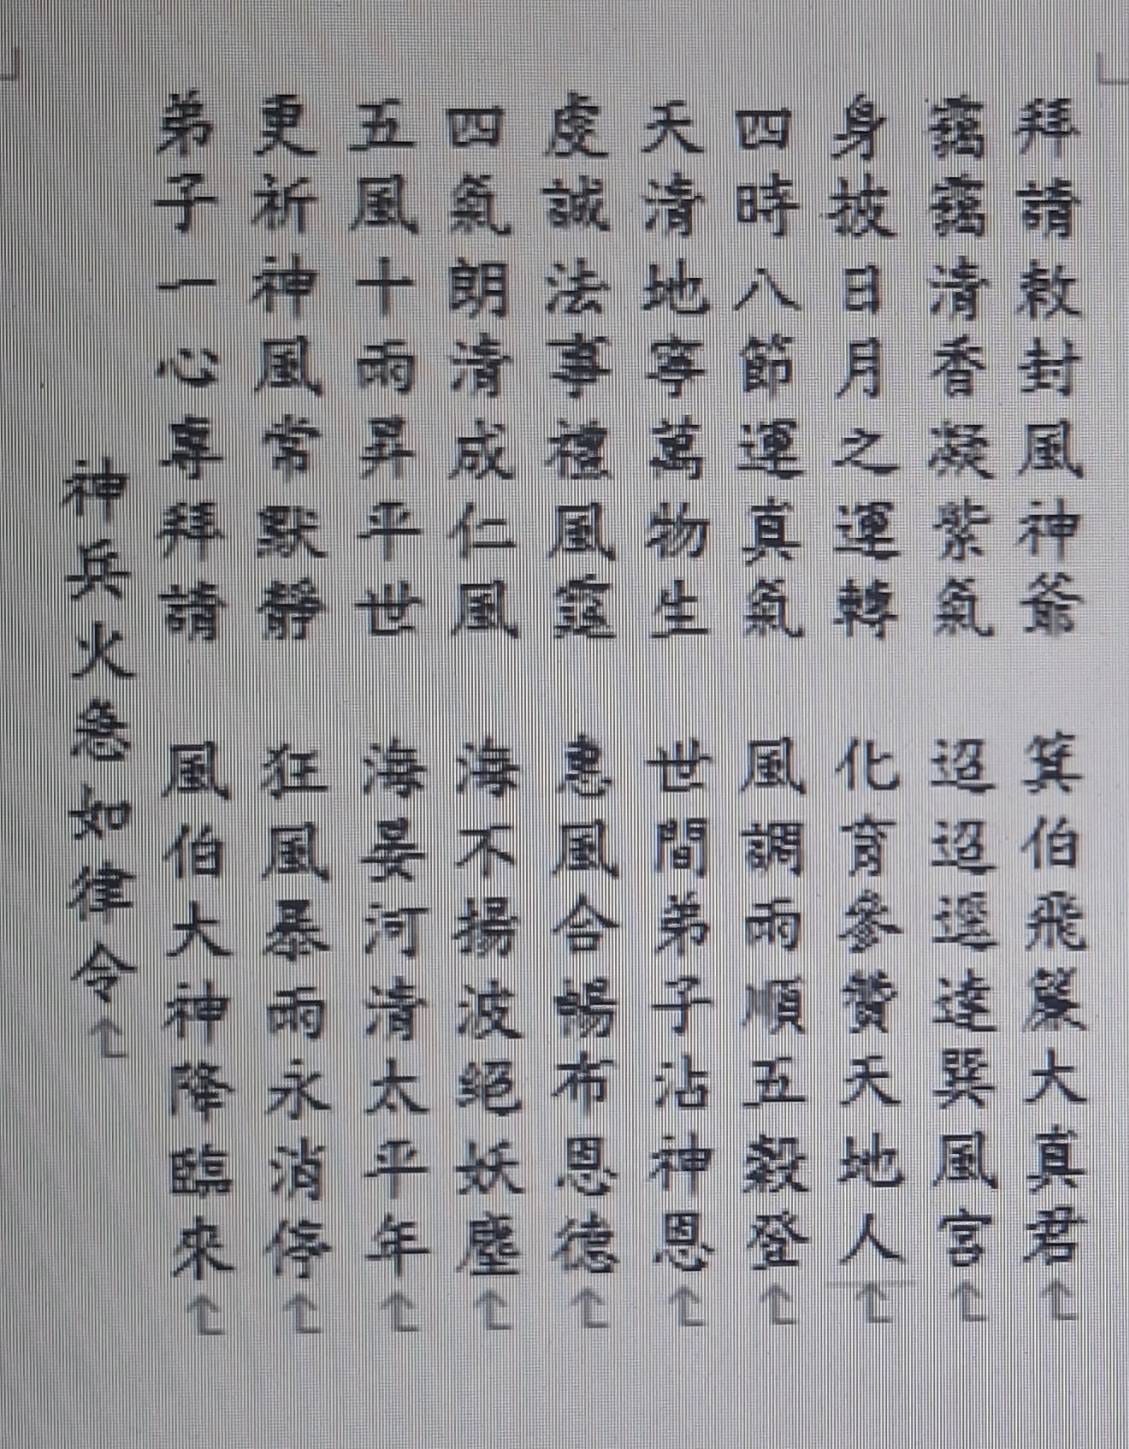 拜請敕封風神爺　箕伯飛簾大真君
靄靄清香凝紫氣　迢迢遥達巽風宮
身披日月之運轉　化育參贊天地人
四時八節運真氣　風調雨順五穀登
天清地寧萬物生　世間弟子沾神恩
虔誠法事禮風霆　惠風合暢布恩德
四氣朗清成仁風　海不揚波絕妖塵
五風十雨昇平世　海晏河清太平年
更祈神風常默靜　狂風暴雨永消停
弟子一心專拜請　風伯大神降臨來
神兵火急如律令